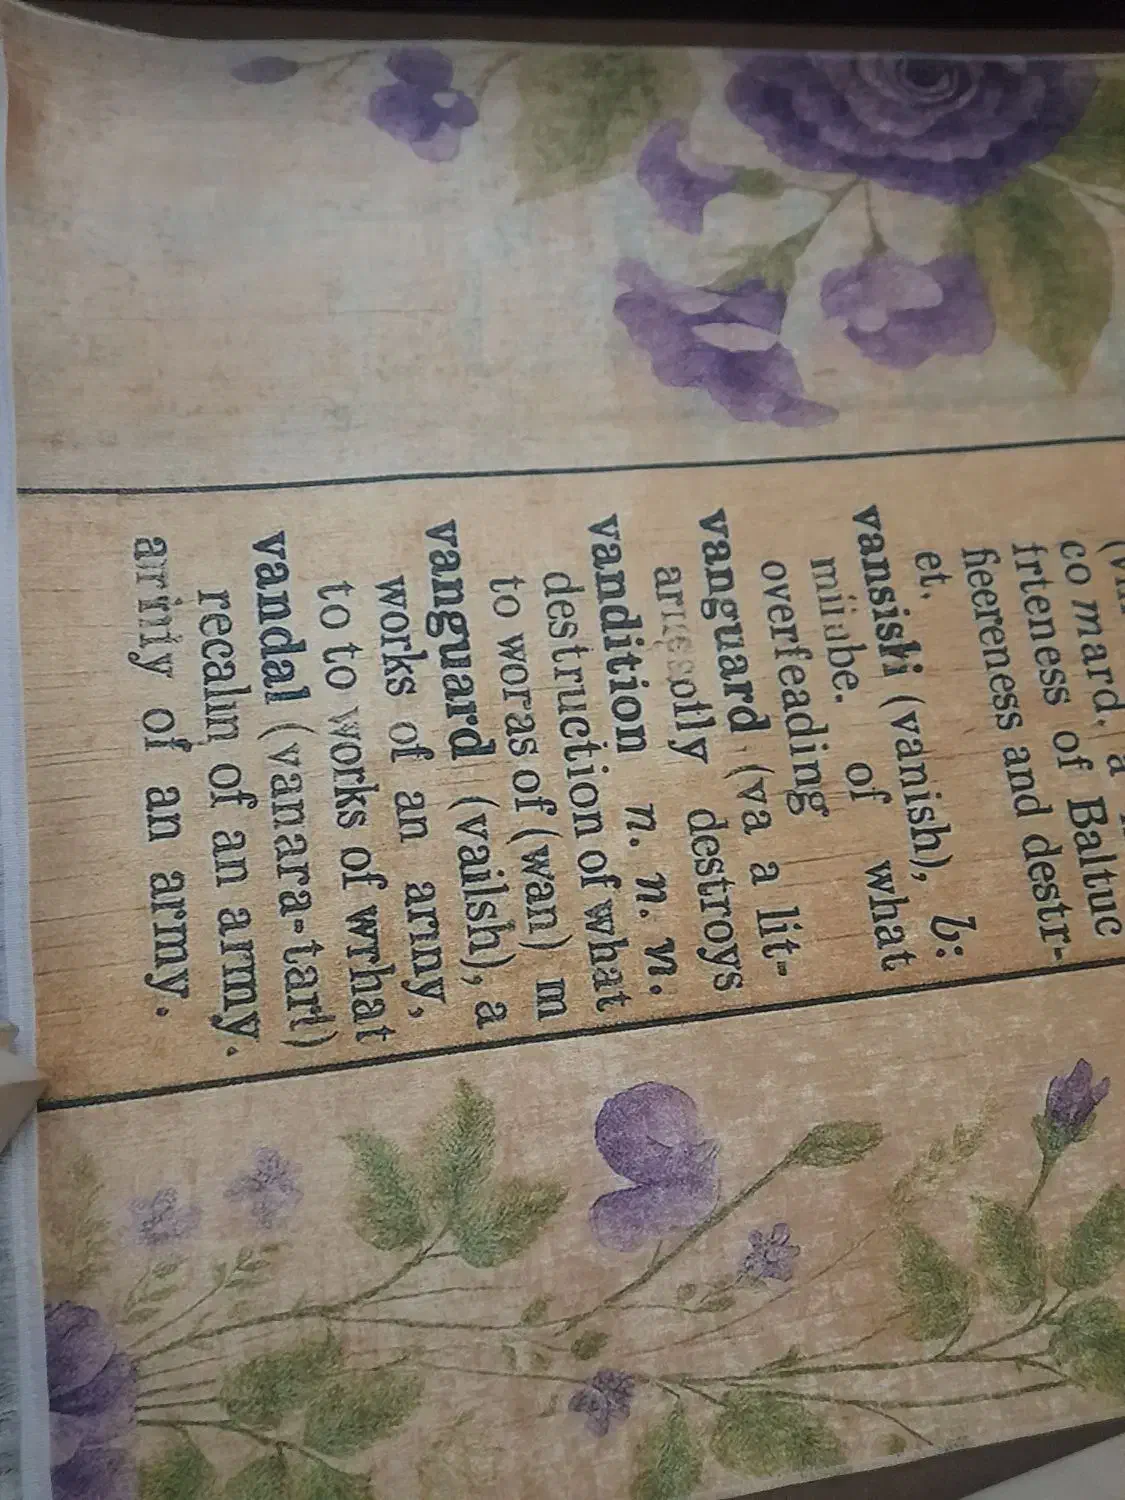 co mard, a
frteness of Baltuc
fieereness and destr-
et, b:
vansishi (vanish),
miiube. of what
overfeading
vanguard (va a lit-
destroys
vandition n. n. n.
destruction of what
to woras of (wan) m
vanguard (vailsh), a
works of an arny,
to to works of wrhat
vandal (vanara-tart)
recalin of an army.
arinty of an army.